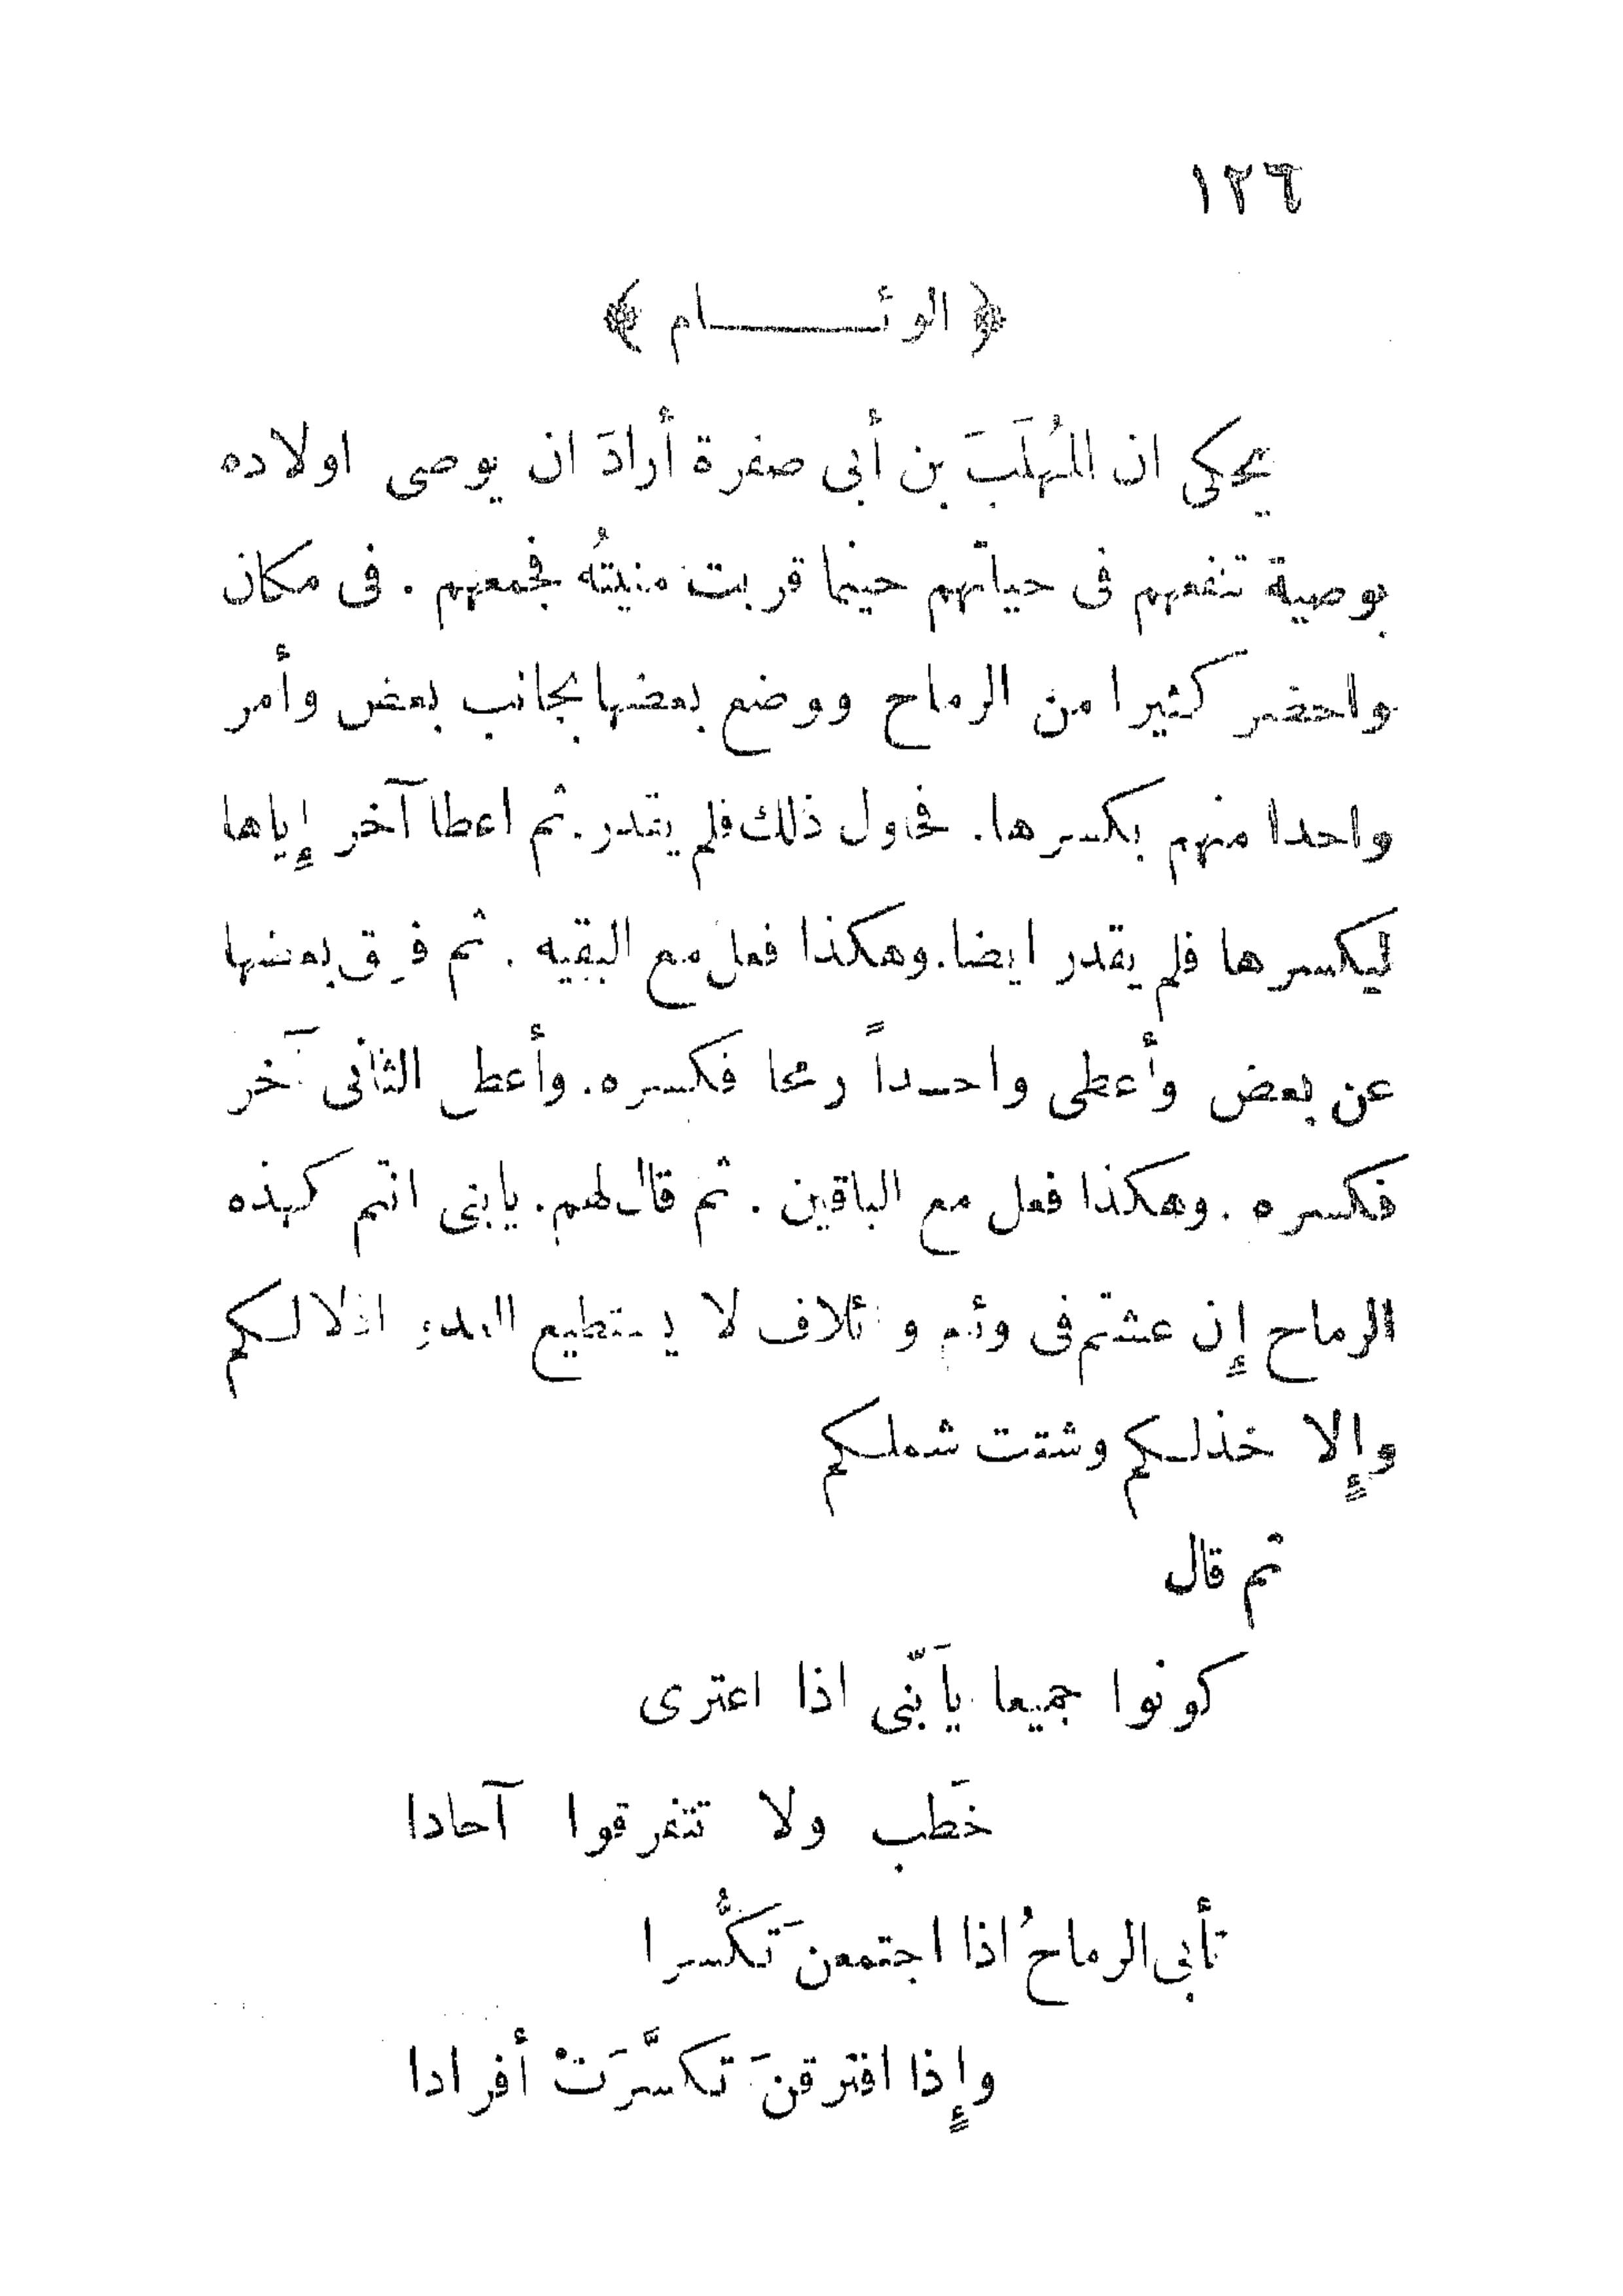 ١٢٦
﴿ الوئـــــام ﴾
يحكى ان المُهلَبَ بن أبى صفرة أرادَ ان يوصى اولاده
بوصية تنفعهم فى حياتهم حينما قربت منيتُه فجمعهم . فى مكان
واحضر كثيرا من الرماح ووضع بعضها بجانب بعض وأمر
واحدا منهم بكسرها. فحاول ذلك فلم يقدر. ثم اعطا آخر إياها
ليكسرها فلم يقدر ايضا. وهكذا فعل مع البقيه . ثم فرق بعضها
عن بعض وأعطى واحـداً رمحا فكسره. وأعطى الثانى آخر
فكسره . وهكذا فعل مع الباقين . ثم قال لهم. يابنى انتم كهذه
الرماح إن عشتم فى وئام وائلاف لا يستطيع العدو اذلالكم
وإلا خذلكم وشتت شملكم
ثم قال
كونوا جميعا يَابَنّى اذا اعترى
خَطب ولا تتفرقوا آحادا
تأبى الرماحُ اذا اجتمعن تَكَسُّرا
وإذا افترقنَ تَكسَّرَتْ أفرادا